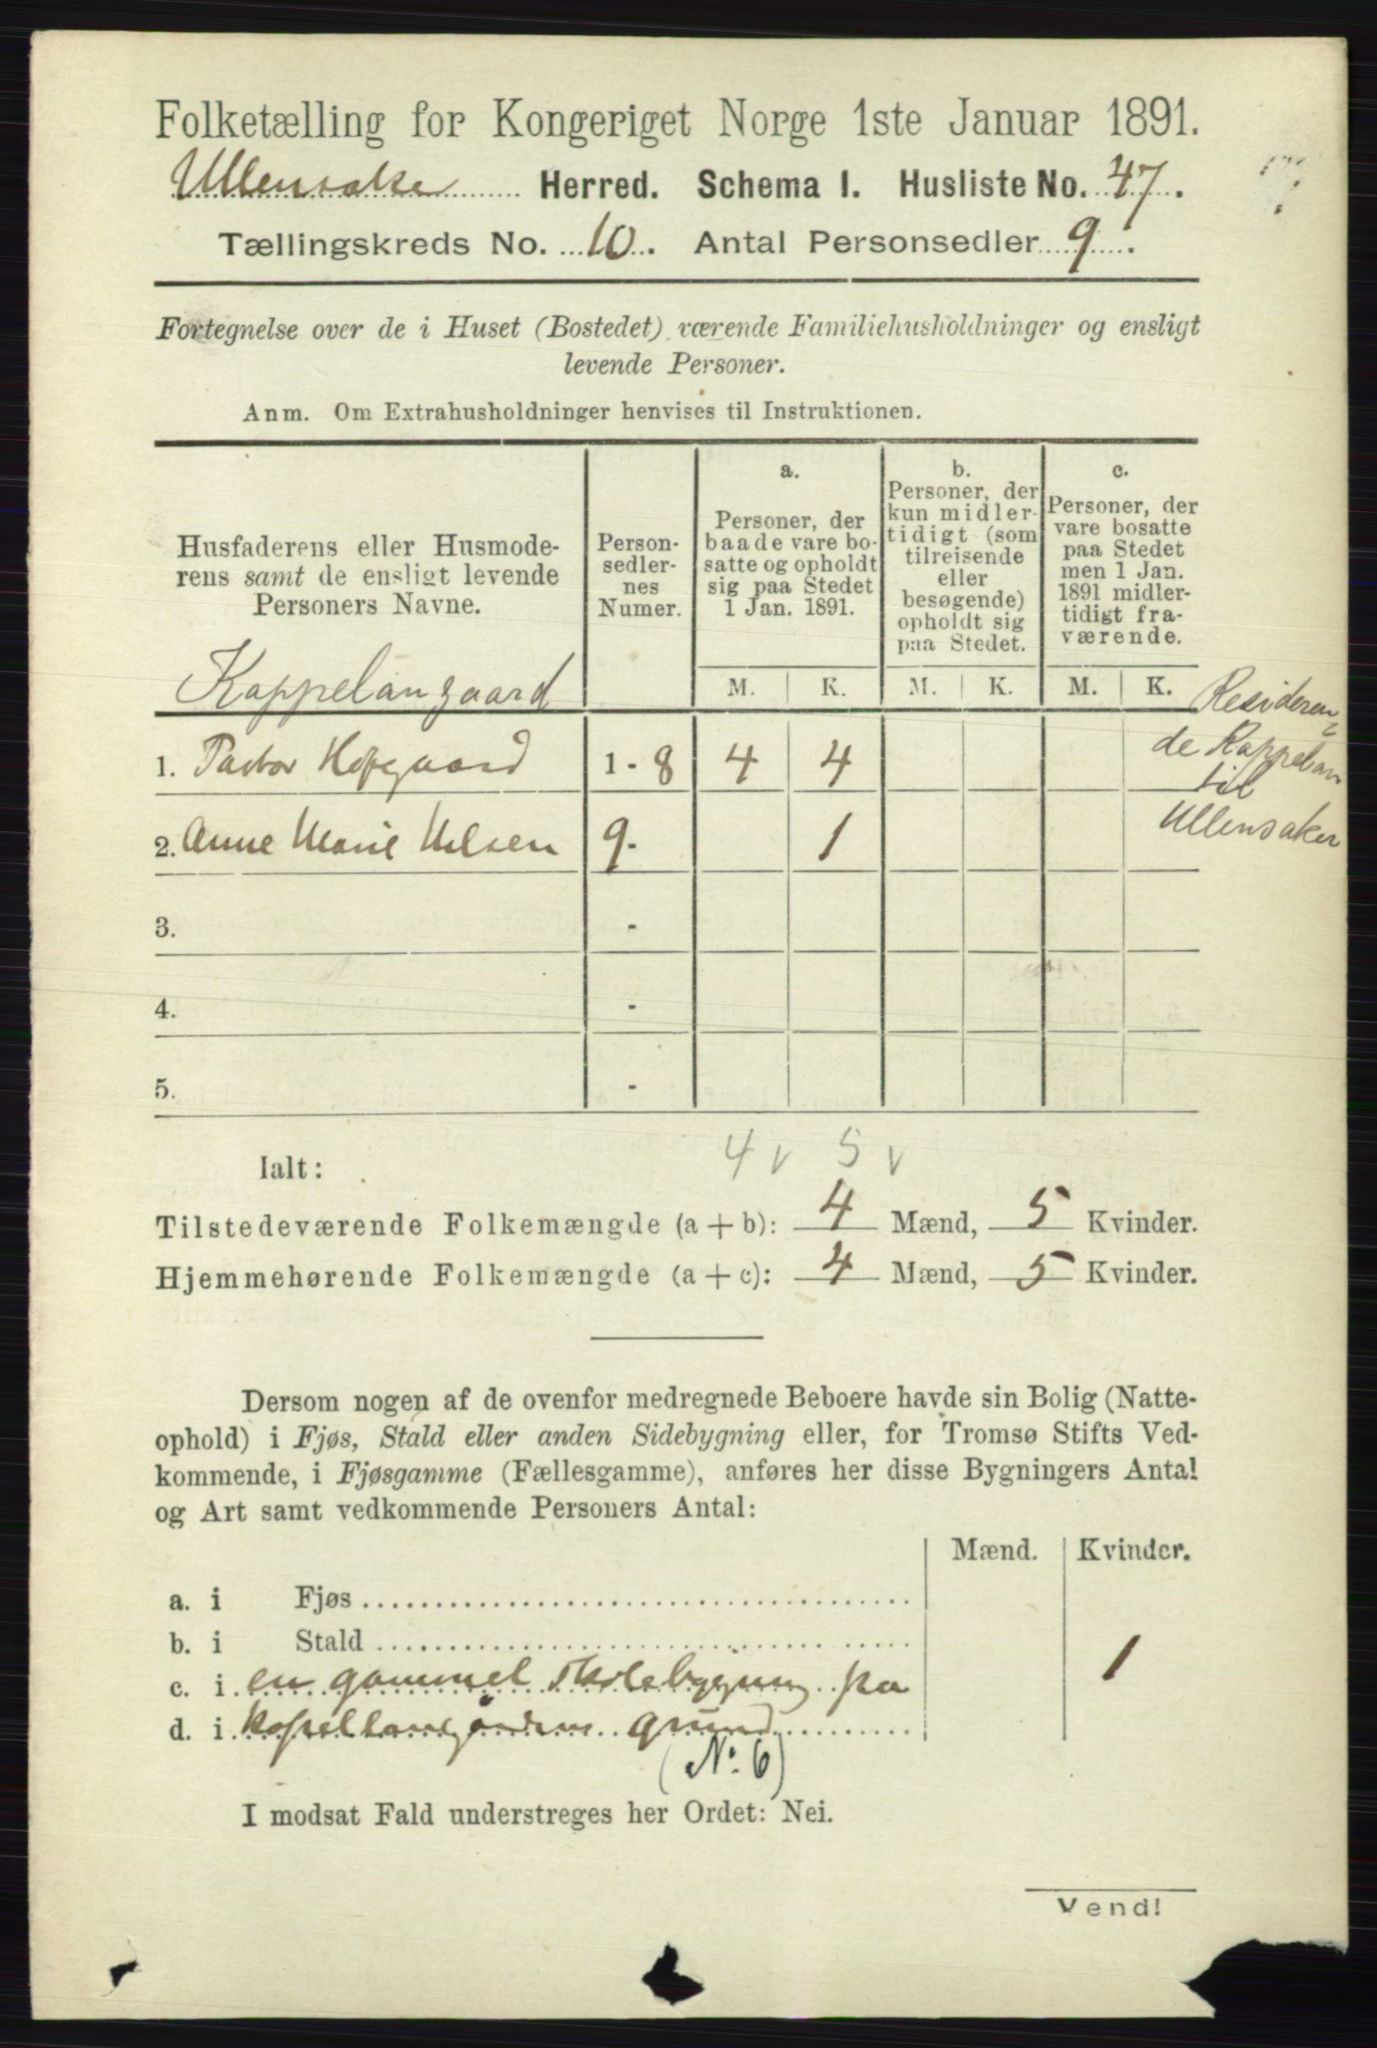 Folketælling for Kongeriget Norge 1ste Januar 1891.
Ullensaker Herred. Schema I. Husliste No. 47.
Tællingskreds No. 10. Antal Personsedler 9.
Fortegnelse over de i Huset (Bostedet) værende Familiehusholdninger og ensligt
levende Personer.
Anm. Om Extrahusholdninger henvises til Instruktionen.
Husfaderens eller Husmode-
rens samt de ensligt levende
Personers Navne.
Person-
sedler-
nes
Numer.
a.
Personer, der
baade vare bo-
satte og opholdt
sig paa Stedet
1 Jan. 1891.
b.
Personer, der
kun midler-
tidigt (som
tilreisende
eller
besøgende)
opholdt sig
paa Stedet.
c.
Personer, der
vare bosatte
paa Stedet
men 1 Jan.
1891 midler-
tidigt fra-
værende.
M. K. M. K. M. K.
Kappelangaard
Resideren-
de Kappelan
til
Ullensaker
1. Pastor Hofgaard 1 - 8 4 4
2. Anne Marie Nilsen 9 - 1
3. -
4. -
5. -
4 v 5 v
Ialt:
Tilstedeværende Folkemængde (a + b): 4 Mænd, 5 Kvinder.
Hjemmehørende Folkemængde (a + c): 4 Mænd, 5 Kvinder.
Dersom nogen af de ovenfor medregnede Beboere havde sin Bolig (Natte-
ophold) i Fjøs, Stald eller anden Sidebygning eller, for Tromsø Stifts Ved-
kommende, i Fjøsgamme (Fællesgamme), anføres her disse Bygningers Antal
og Art samt vedkommende Personers Antal:
Mænd. Kvinder.
a. i Fjøs
b. i Stald
c. i en gammel skolebygning pa 1
d. i grund
(No. 6)
I modsat Fald understreges her Ordet: Nei.
Vend!